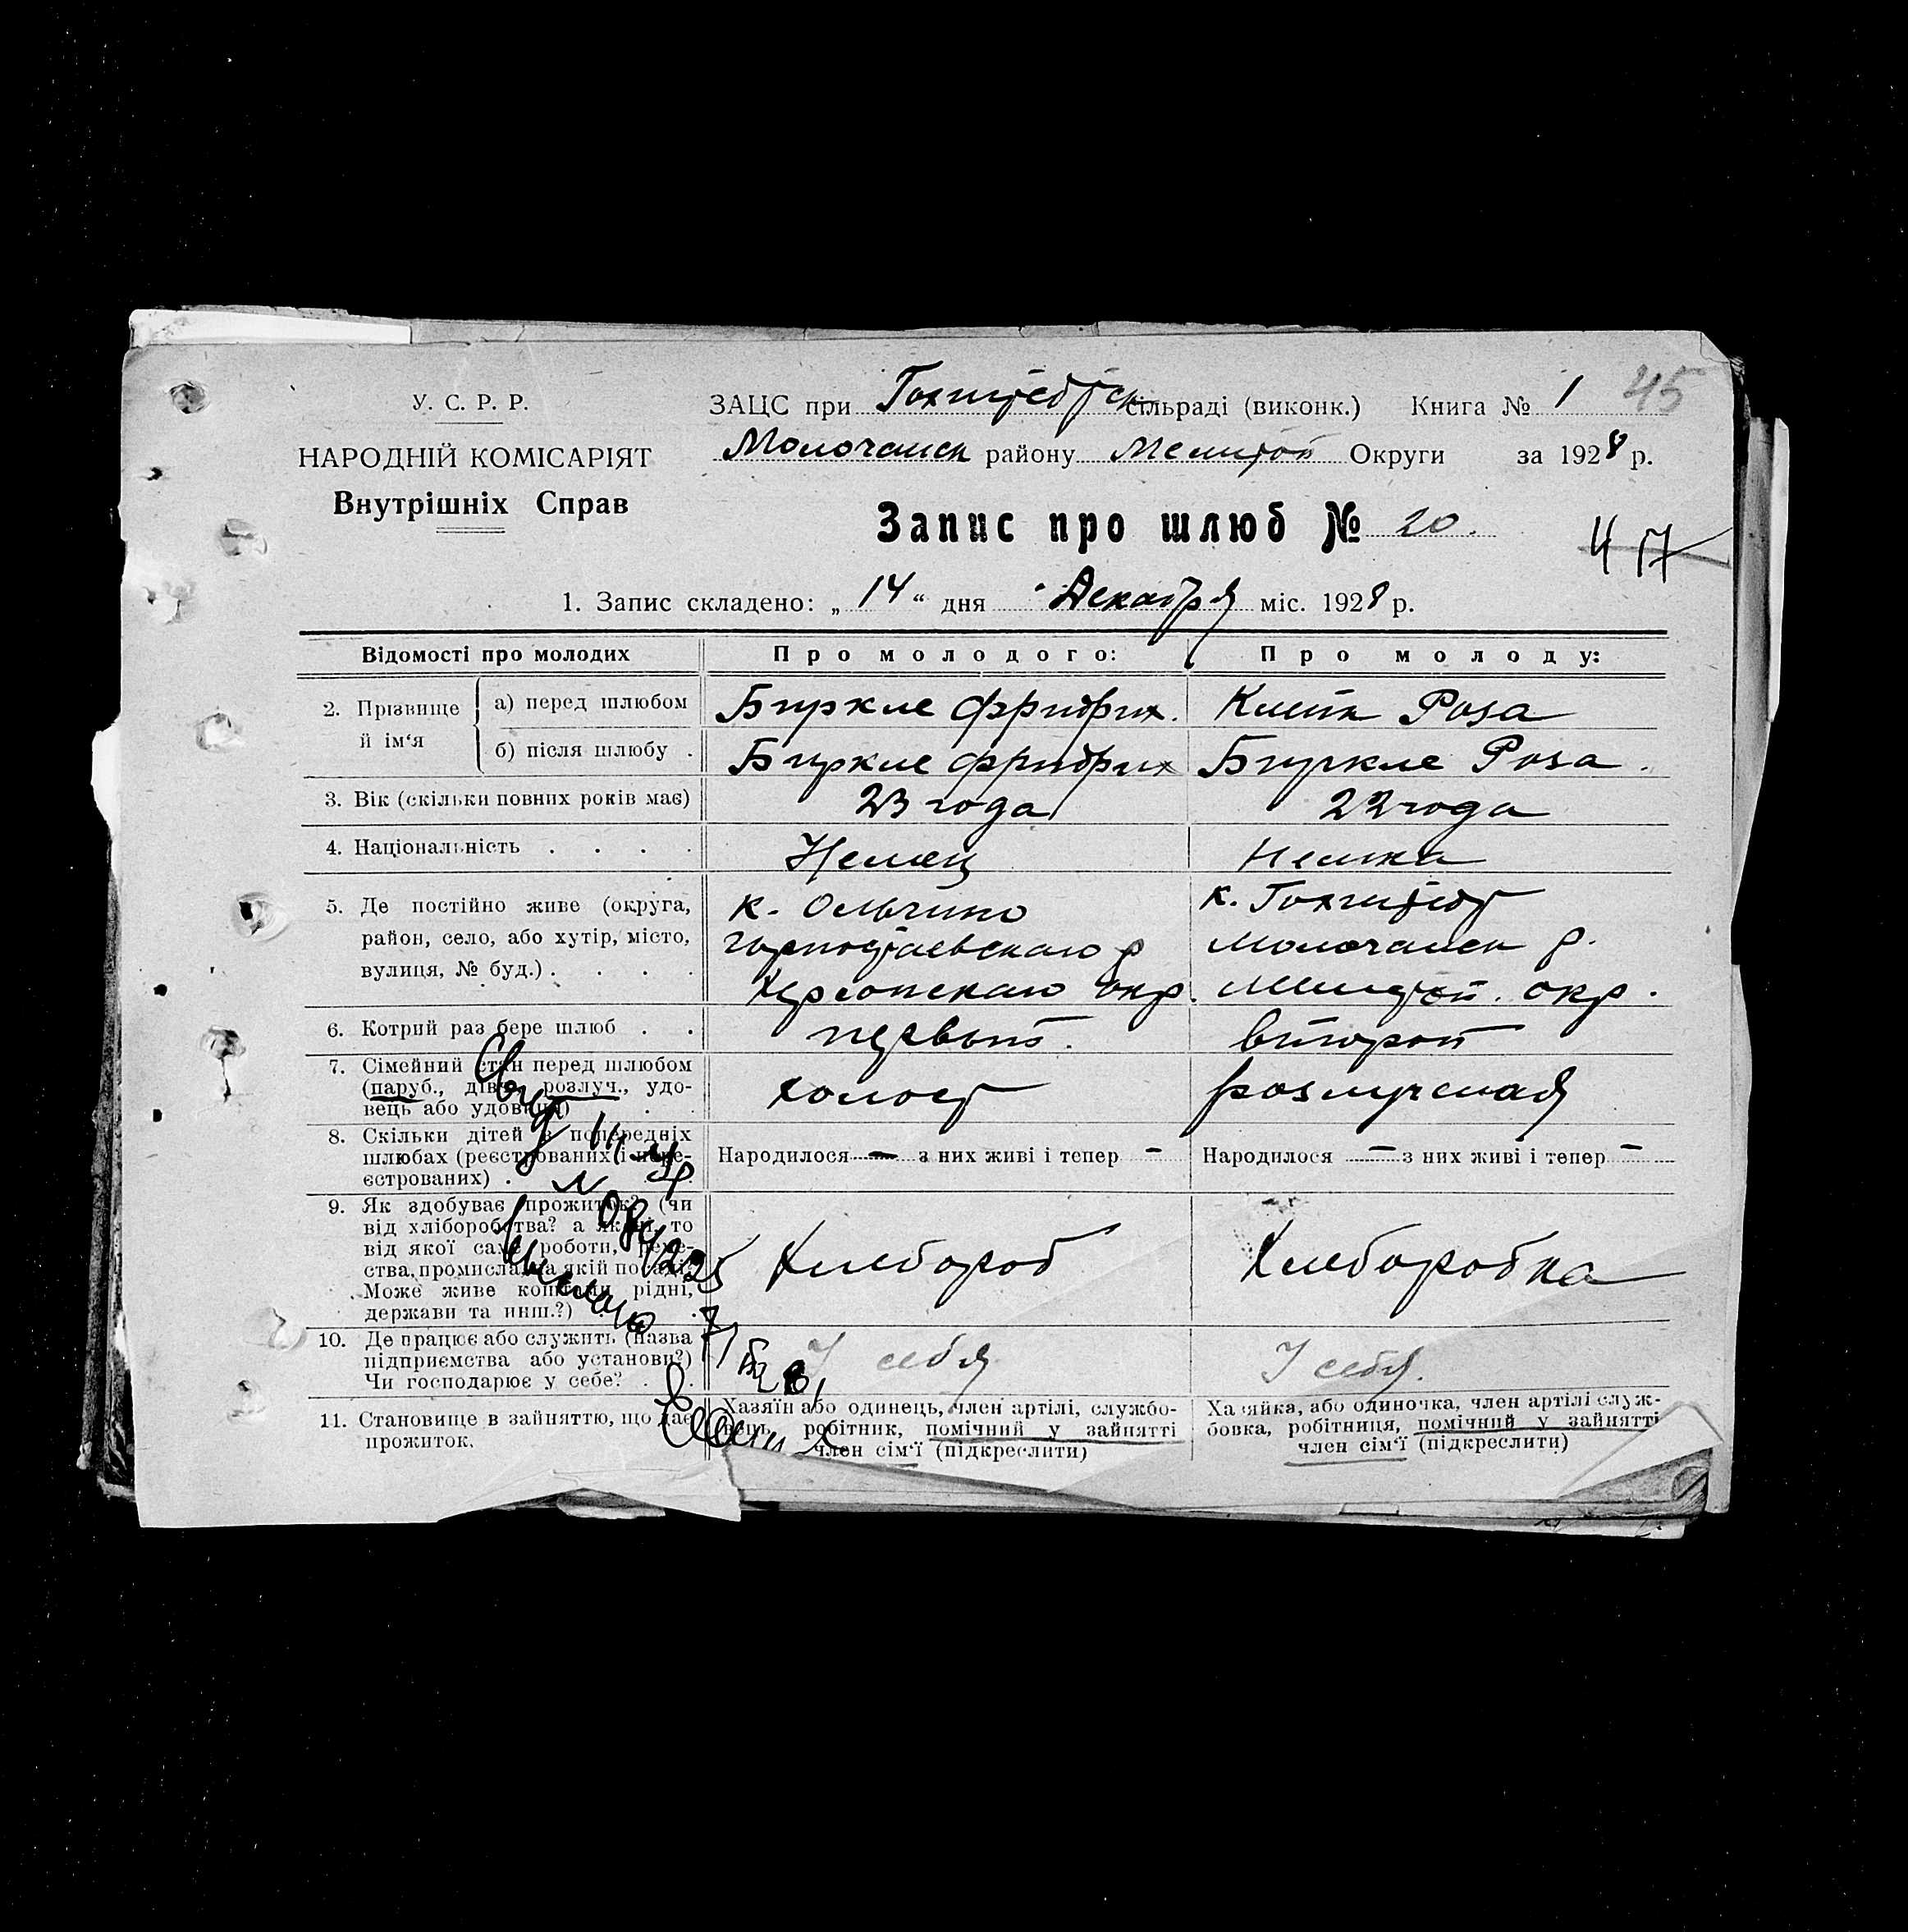 У. С. Р. Р.
НАРОДНІЙ КОМІСАРІЯТ
Внутрішніх Справ
ЗАЦС при Гохштедтск сільраді (виконк.) Книга № 1 45
Молочанск району Мелитоп Округи за 1928 р.
Запис про шлюб № 20.
47
1. Запис складено: „14“ дня Декабря міс. 1928 р.
Відомості про молодих
Про молодого:
Про молоду:
2. Прізвище й ім‘я
а) перед шлюбом
Биркле Фридрих.
Клейн Роза
б) після шлюбу .
Биркле Фридрих
Биркле Роза.
3. Вік (скільки повних років має)
23 года
22 года
4. Національність . . . .
Немец
Немка
5. Де постійно живе (округа,
район, село, або хутір, місто,
вулиця, № буд.) . . . .
к. Ольгино
Горностаевскаго р
Херсонскаго окр.
к. Гохштедт
Молочанск р.
Мелитоп. окр.
6. Котрий раз бере шлюб . .
первый.
второй
7. Сімейний стан перед шлюбом
(паруб., дівч., розлуч., удо-
вець або удовиця) . .
холост
розлученая
8. Скільки дітей з попередніх
шлюбах (реєстрованих і нере-
єстрованих) .
Народилося — з них живі і тепер —
Народилося — з них живі і тепер —
9. Як здобуває прожиток? (чи
від хліборобства? а як ні, то
від якої саме роботи, реме-
ства, промисла, на якій посаді?
Може живе коштами рідні,
держави та инш.?)
Хлебороб
Хлеборобка
10. Де працює або служить (назва
підприємства або установи?)
Чи господарює у себе? . .
У себя
У себя.
11. Становище в зайняттю, що дає
прожиток.
Хазяїн або одинець, член артілі, службо-
вець, робітник, помічний у зайнятті
член сім‘ї (підкреслити)
Хазяйка, або одиночка, член артілі служ-
бовка, робітниця, помічний у зайнятті
член сім‘ї (підкреслити)